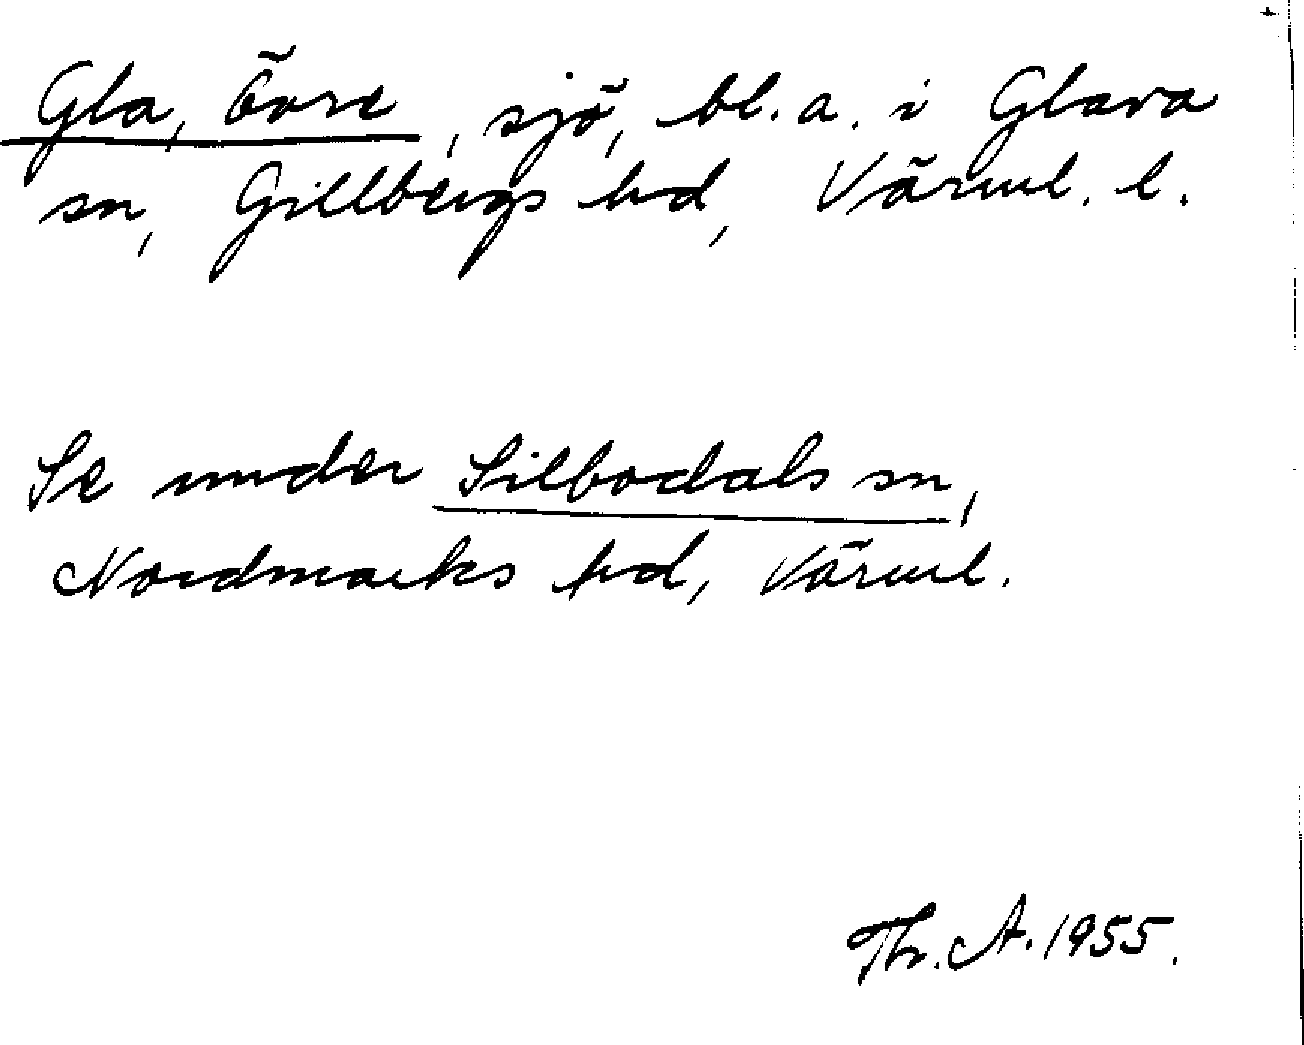 Gla, Övre, sjö, bl. a. i Glava
sn, Gillbergs hd, Värml. l.
Se under Silbodals sn,
Nordmarks hd, Värml.
Th. A. 1955.